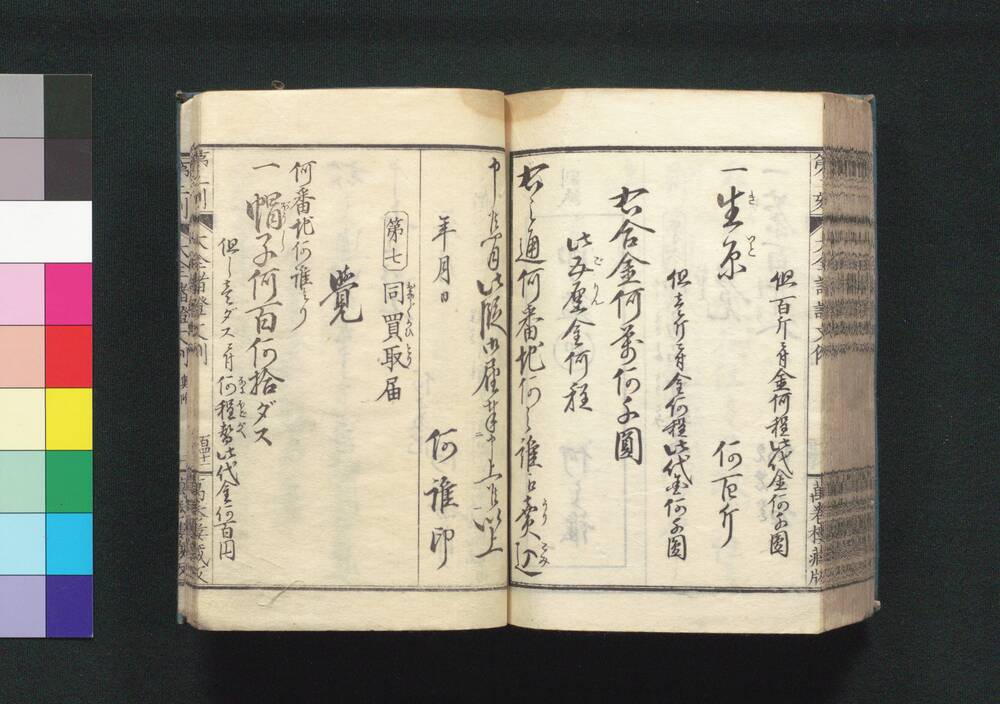 但百斤ニ付金何程此代金何千圓
一生糸 何百斤
但壱斤ニ付金何程此代金何千圓
右合金何萬何千圓
此五厘金何程
右之通何番地何之誰江賣込
申候間此段御届奉申上候以上
年月日 何誰印
第七 同買取届
覺
何番地何誰ゟ
一帽子何百何拾ダス
但し壱ダスニ付何程替此代金何百円
萬巻樓藏版